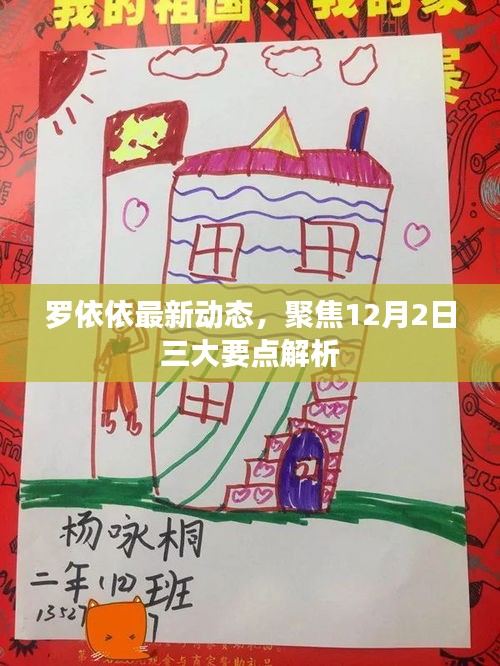 我的祖国、我的家
罗依依最新动态，聚焦12月2日
三大要点解析
杨咏桐
二年(12)班
13527
7